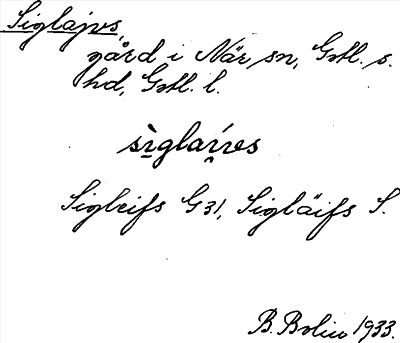 Siglajvs,
gård i När, sn, Gotl. s.
hd, Gotl. l.
sìglaívs
Sigleifs G31, Sigläifs S.
B. Bolin 1933.